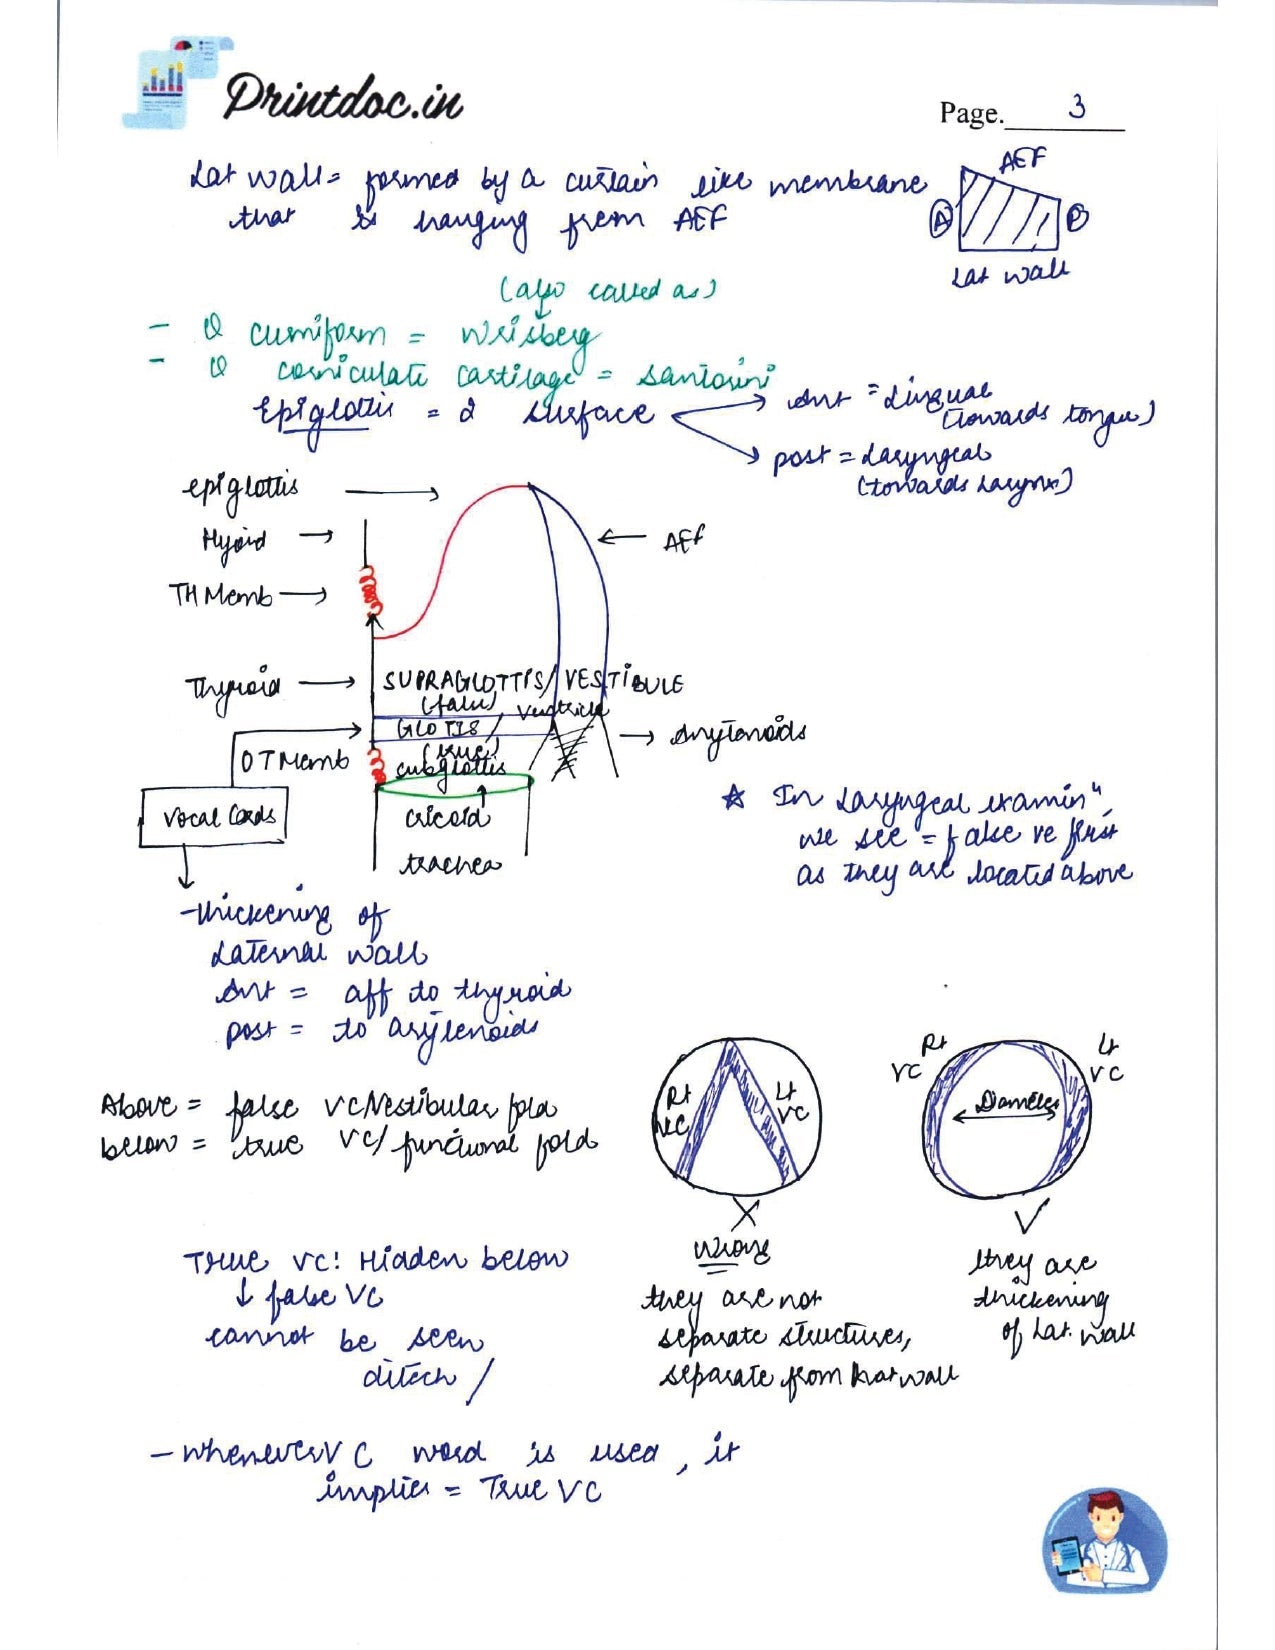 Printdoc.in
Page. 3
Lat wall = formed by a curtain like membrane
that is hanging from AEF
AEF
A
P
Lat wall
(also called as)
- cuniform = Wrisberg
- corniculate cartilage = santorini
Epiglottis = 2 surface
Ant = Lingual
(towards tongue)
post = Laryngeal
(towards Larynx)
epiglottis
Hyoid
AEF
TH Memb
Thyroid
SUPRAGLOTTIS/VESTIBULE
(false), ventricle
GLOTIS /
(true)
Arytenoids
OT Memb
subglottis
Vocal Cords
cricoid
trachea
* In Laryngeal examinⁿ,
we see = false vc first
as they are located above
-thickening of
Laternal wall
Ant = aff to thyroid
post = to arytenoids
Above = false VC/Vestibular fold
below = true VC/functional fold
Rt
VC
Lt
VC
X
Wrong
they are not
separate structures,
separate from Lat wall
Rt
VC
Lt
VC
Diameter
they are
thickening
of Lat. wall
True VC: Hidden below
↓ false VC
cannot be seen
- whenever VC word is used, it
implies = True VC